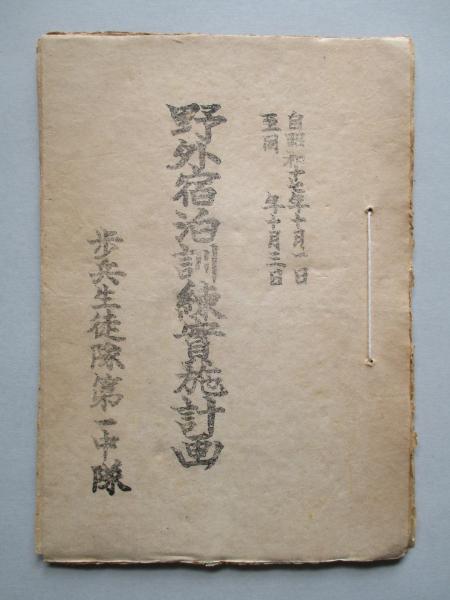 自昭和十七年十月一日
至同 年十月三日
野外宿泊訓練實施計画
歩兵生徒隊第一中隊